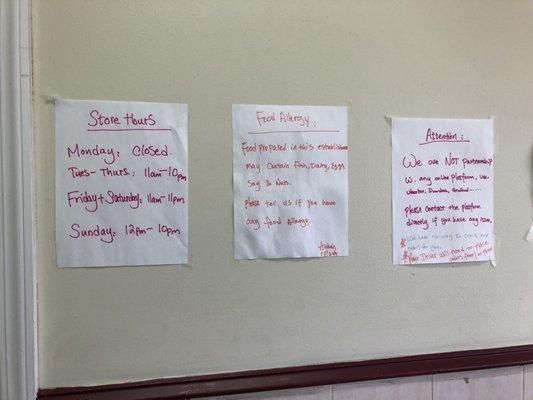 Store Hours
Monday: Closed.
Tues-Thurs: 11am-10pm
Friday+Saturday: 11am-11pm
Sunday: 12pm-10pm
Food Allergy:
Food prepared in this establishment
may Contain Fish, Dairy, Eggs
Soy In Nuts.
Please tell us if you have
any food Allergy.
Attention:
We are NOT partnership
w. any online platform, like
Please contact the platform
directly if you have any issue.
We have no way to check
Your Driver will need to Place